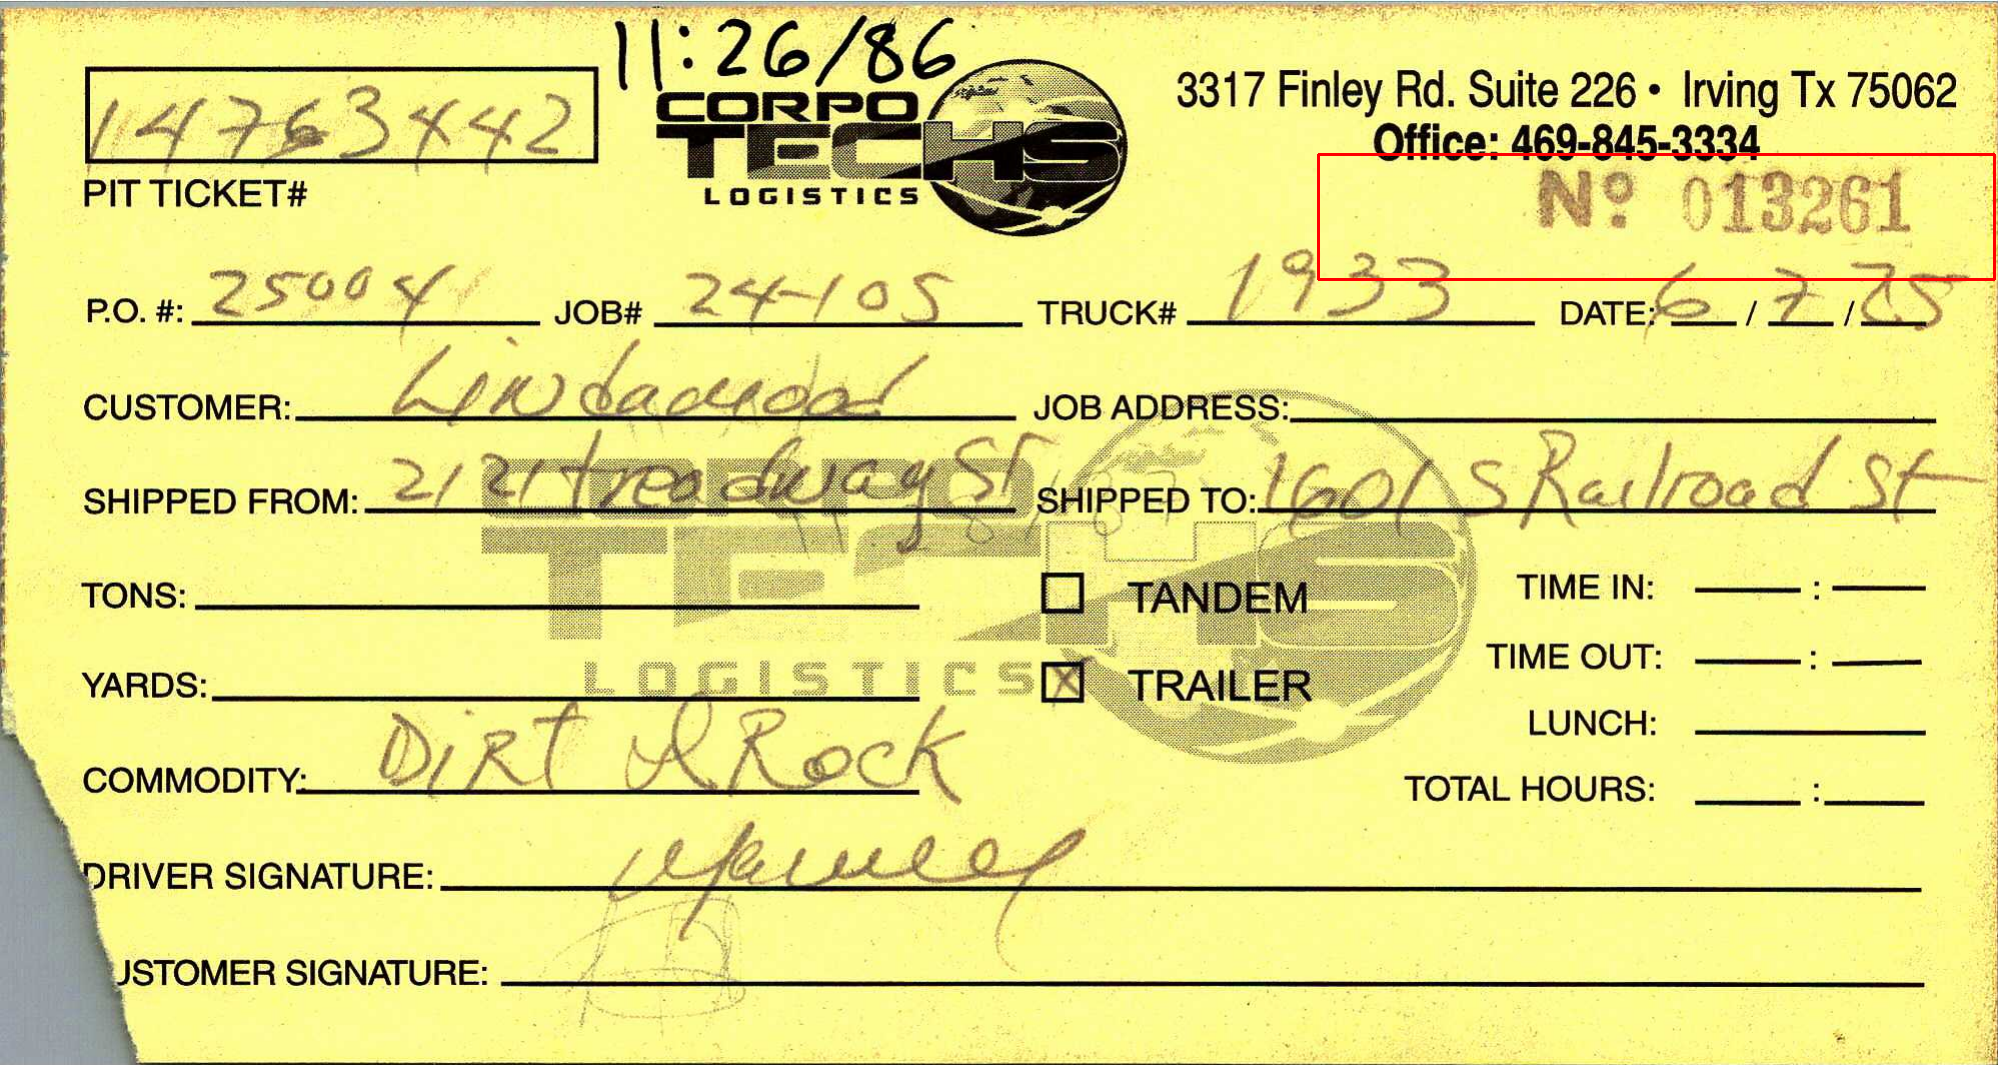 11:26/86
14763442
PIT TICKET#
CORPO
TECHS
LOGISTICS
3317 Finley Rd. Suite 226 • Irving Tx 75062
Office: 469-845-3334
Nº 013261
P.O. #: 25004 JOB# 24-105 TRUCK# 1933 DATE: 6 / 7 / 25
CUSTOMER: JOB ADDRESS:
SHIPPED FROM: 2121 treadway St SHIPPED TO: 1601 S Railroad St
TONS: TANDEM TIME IN: :
YARDS: X TRAILER TIME OUT: :
LUNCH:
COMMODITY: Dirt & Rock TOTAL HOURS: :
DRIVER SIGNATURE:
USTOMER SIGNATURE:
CORPO
TECHS
LOGISTICS